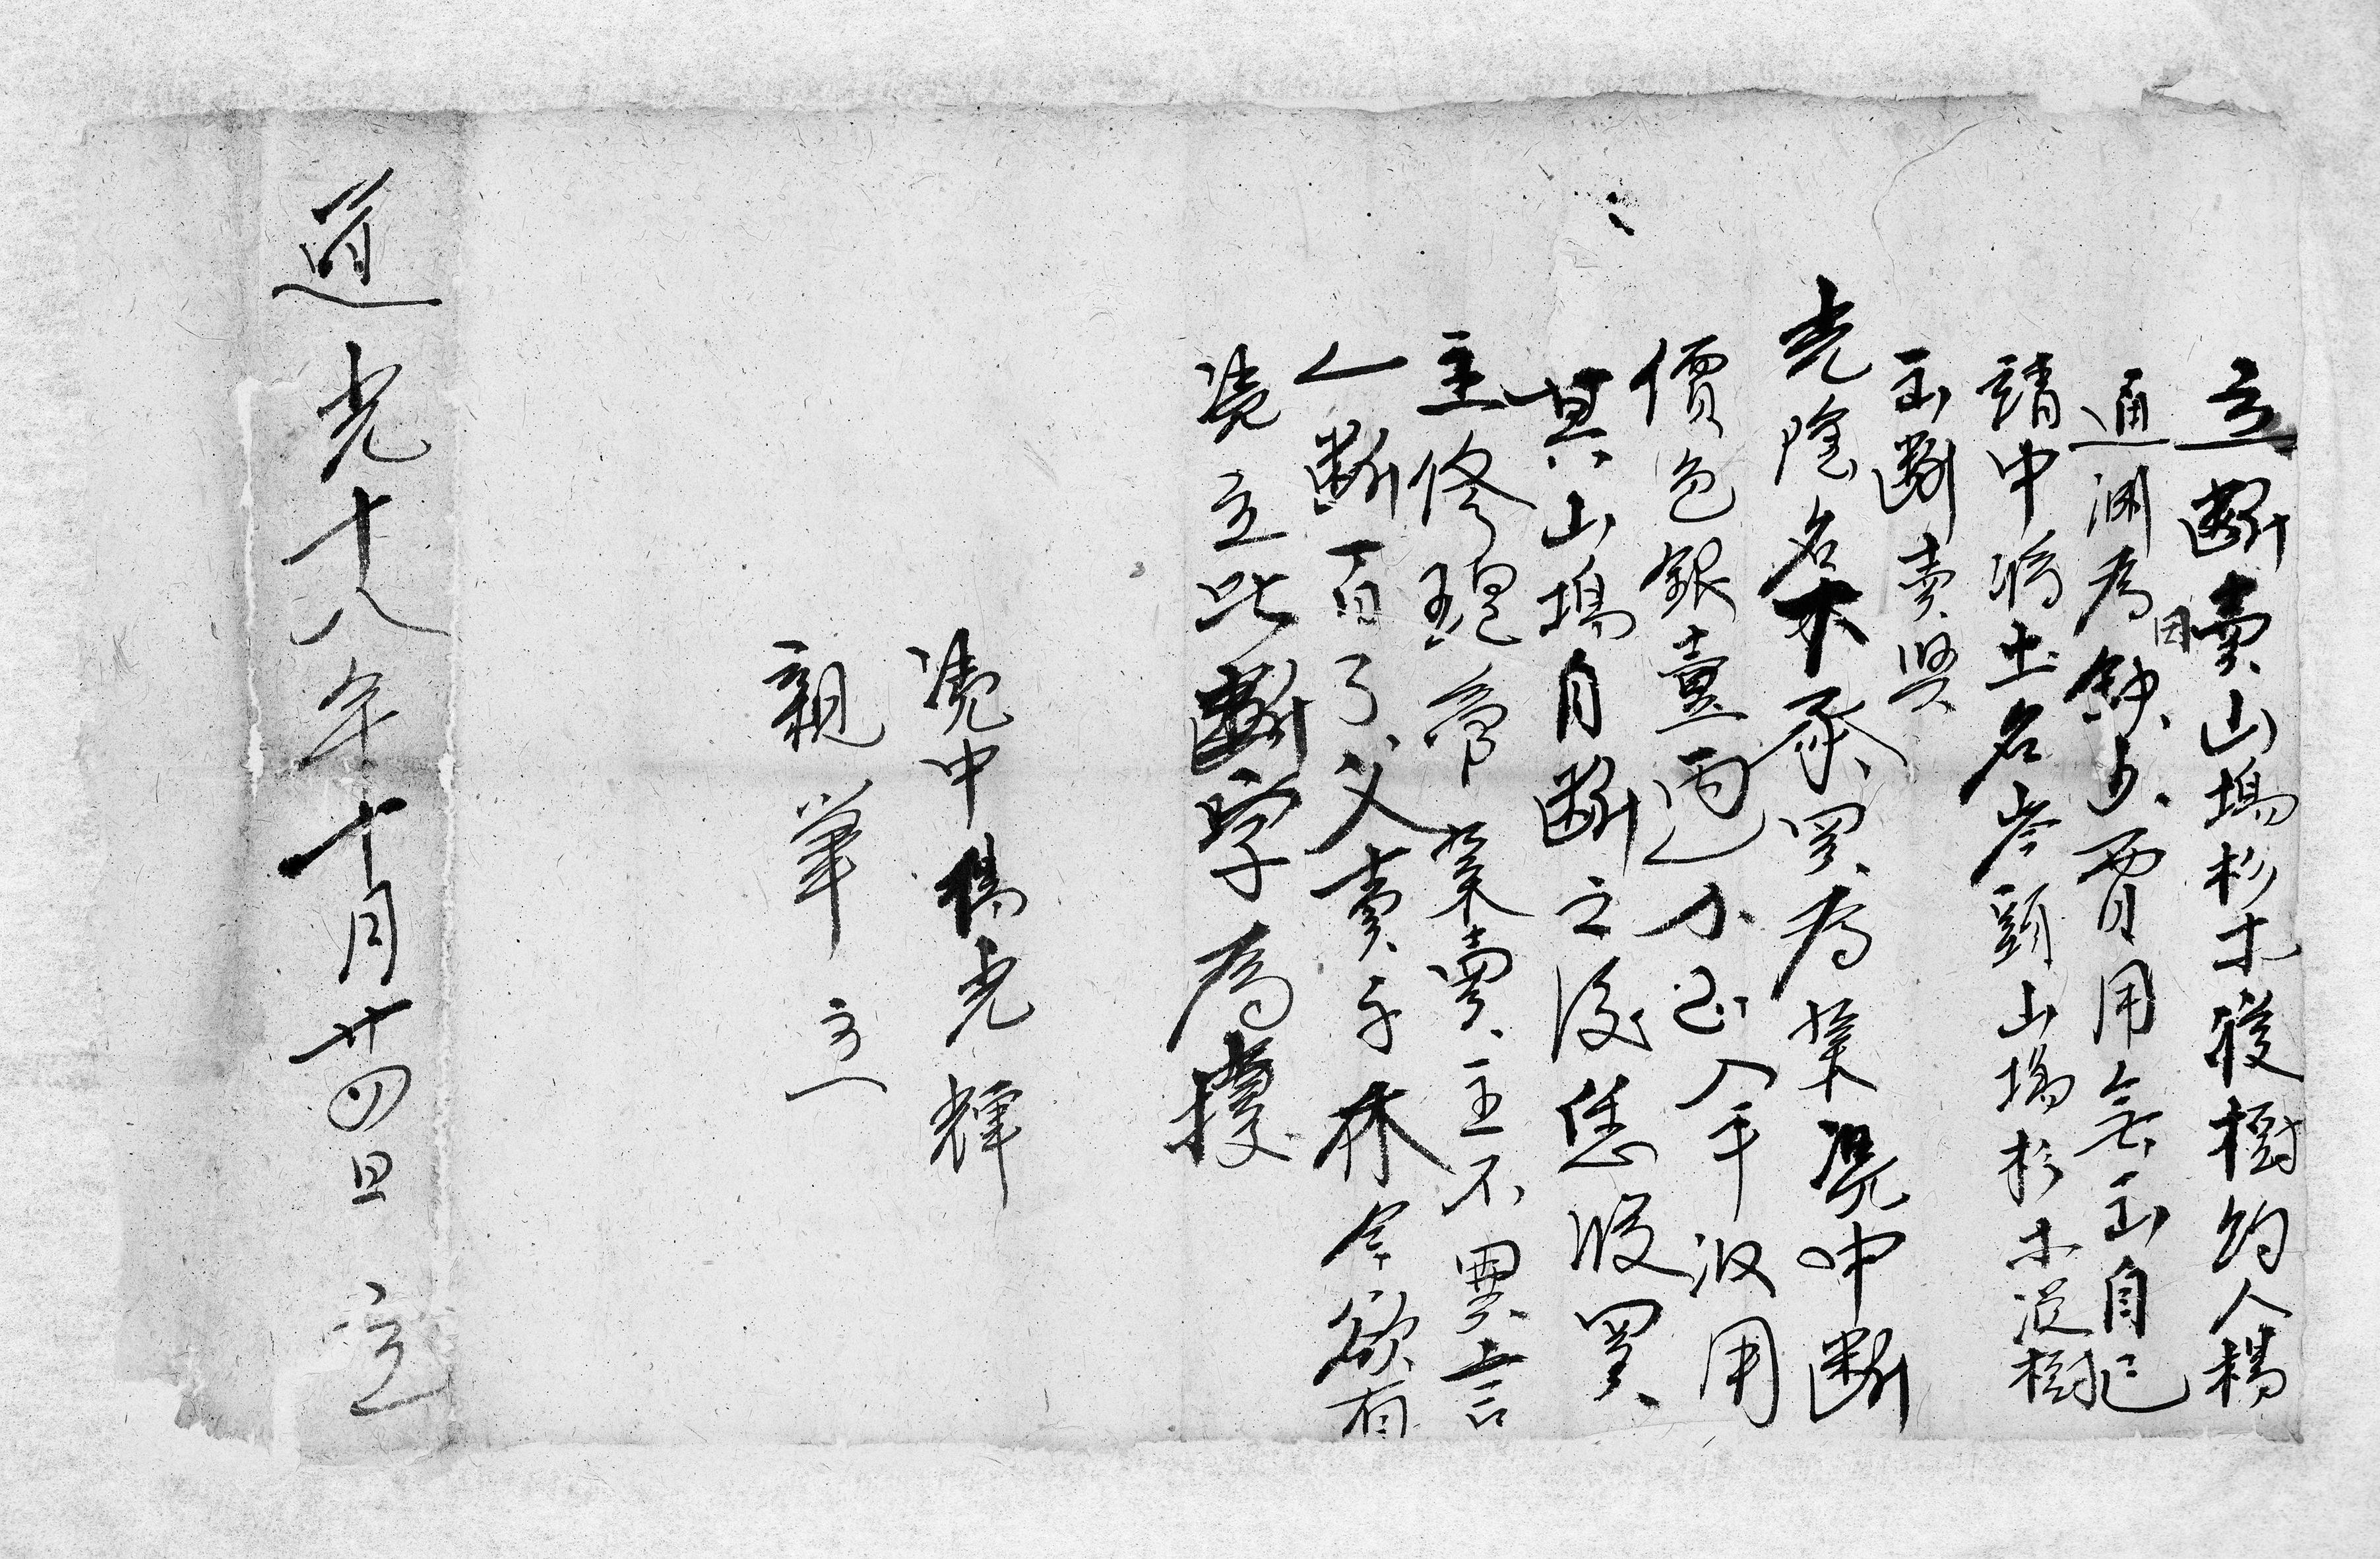 立断賣山塲杉木發樹約人楊
通渊為因缺少費用無出自己
請中將土名岑頭山塲杉木发樹
出断賣與
光隆名下承買為業凴中断
價色銀壹両正亦至入手収用
其山塲自断之後恁從買
主修理𬋩業賣主不異言
一断百了父賣子休今欲有
凴立此断字為據
凴中楊光輝
親筆立
道光十八年十月廿四日立